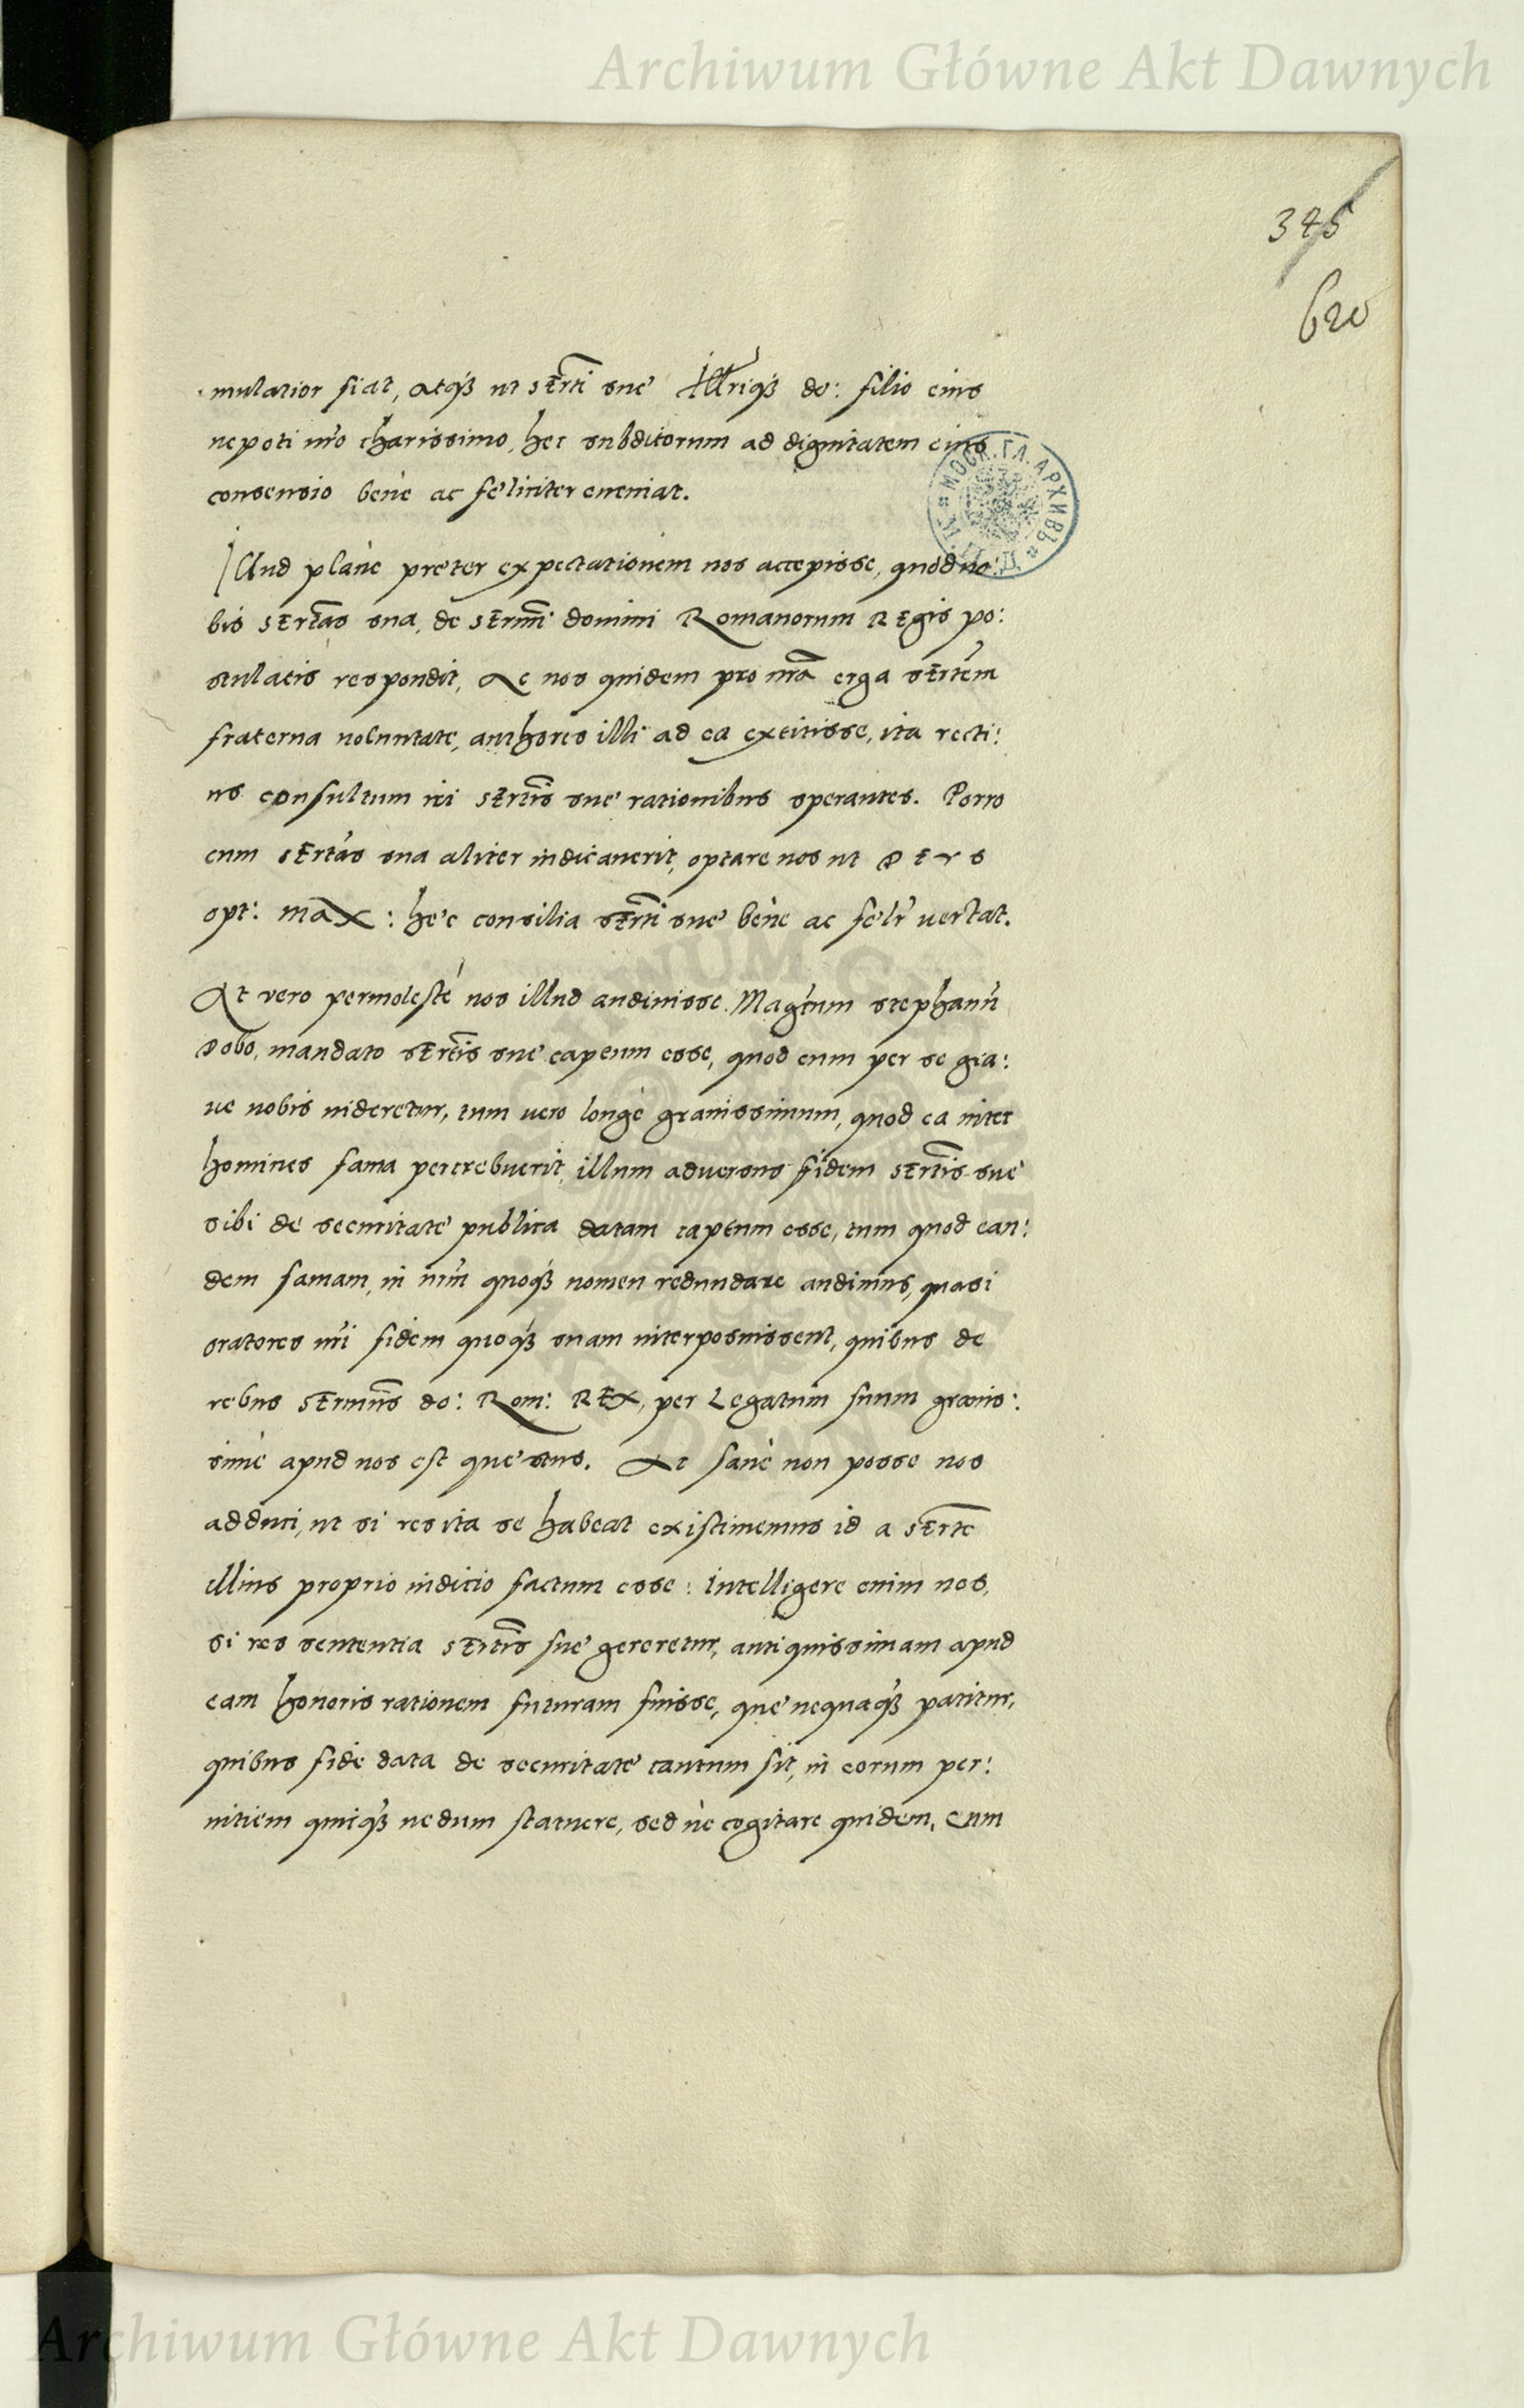 Archiwum Główne Akt Dawnych
345
620
mulatior fiat, atq3 ut sErti sue Illriq3 do: filio eius
nepoti nro charissimo, hec subditorum ad dignitatem eius
consensio bene ac feliciter eveniat.
МОСК. ГЛ. АРХИВЪ
Illud plane preter expectationem nos accepisse, quod no:
bis sErtas sua, de sErmi domini Romanorum REgis po:
stulatis respondit, Ac nos quidem pro nra erga sErtem
fraterna voluntate, authores illi ad ea extitisse, ita recti:
us consultum iri sErtis sue rationibus sperantes. Porro
cum sErtas sua aliter indicaverit, optare nos ut DEVS
opt: max: hec consilia sErti sue bene ac felr vertat.
At vero permoleste nos illud audivisse, Magcum stephanu
Dobo, mandato sErtis sue captum esse, quod cum per se gra:
ve nobis videretur, tum vero longe gravissimum, quod ea inter
homines fama percrebuerit, illum adversus fidem sErtis sue
sibi de securitate publica datam captum esse, tum quod ean:
dem famam, in nrm quoq3 nomen redundare audimus, quasi
oratores nri fidem quoq3 suam interposuissent, quibus de
rebus sErmus do: Rom: REX, per Legatum suum gravis:
sime apud nos est questus. Ac sane non posse nos
adduci, ut si res ita se habeat existimemus id a sErte
illius proprio iudicio factum esse: intelligere enim nos,
si res sententia sErtis sue gereretur, antiquissimam apud
eam honoris rationem futuram fuisse, que nequaq3 patitur,
quibus fide data de securitate cautum sit, in eorum per:
nitiem quiq3 nedum statuere, sed ne cogitare quidem, cum
Archiwum Główne Akt Dawnych